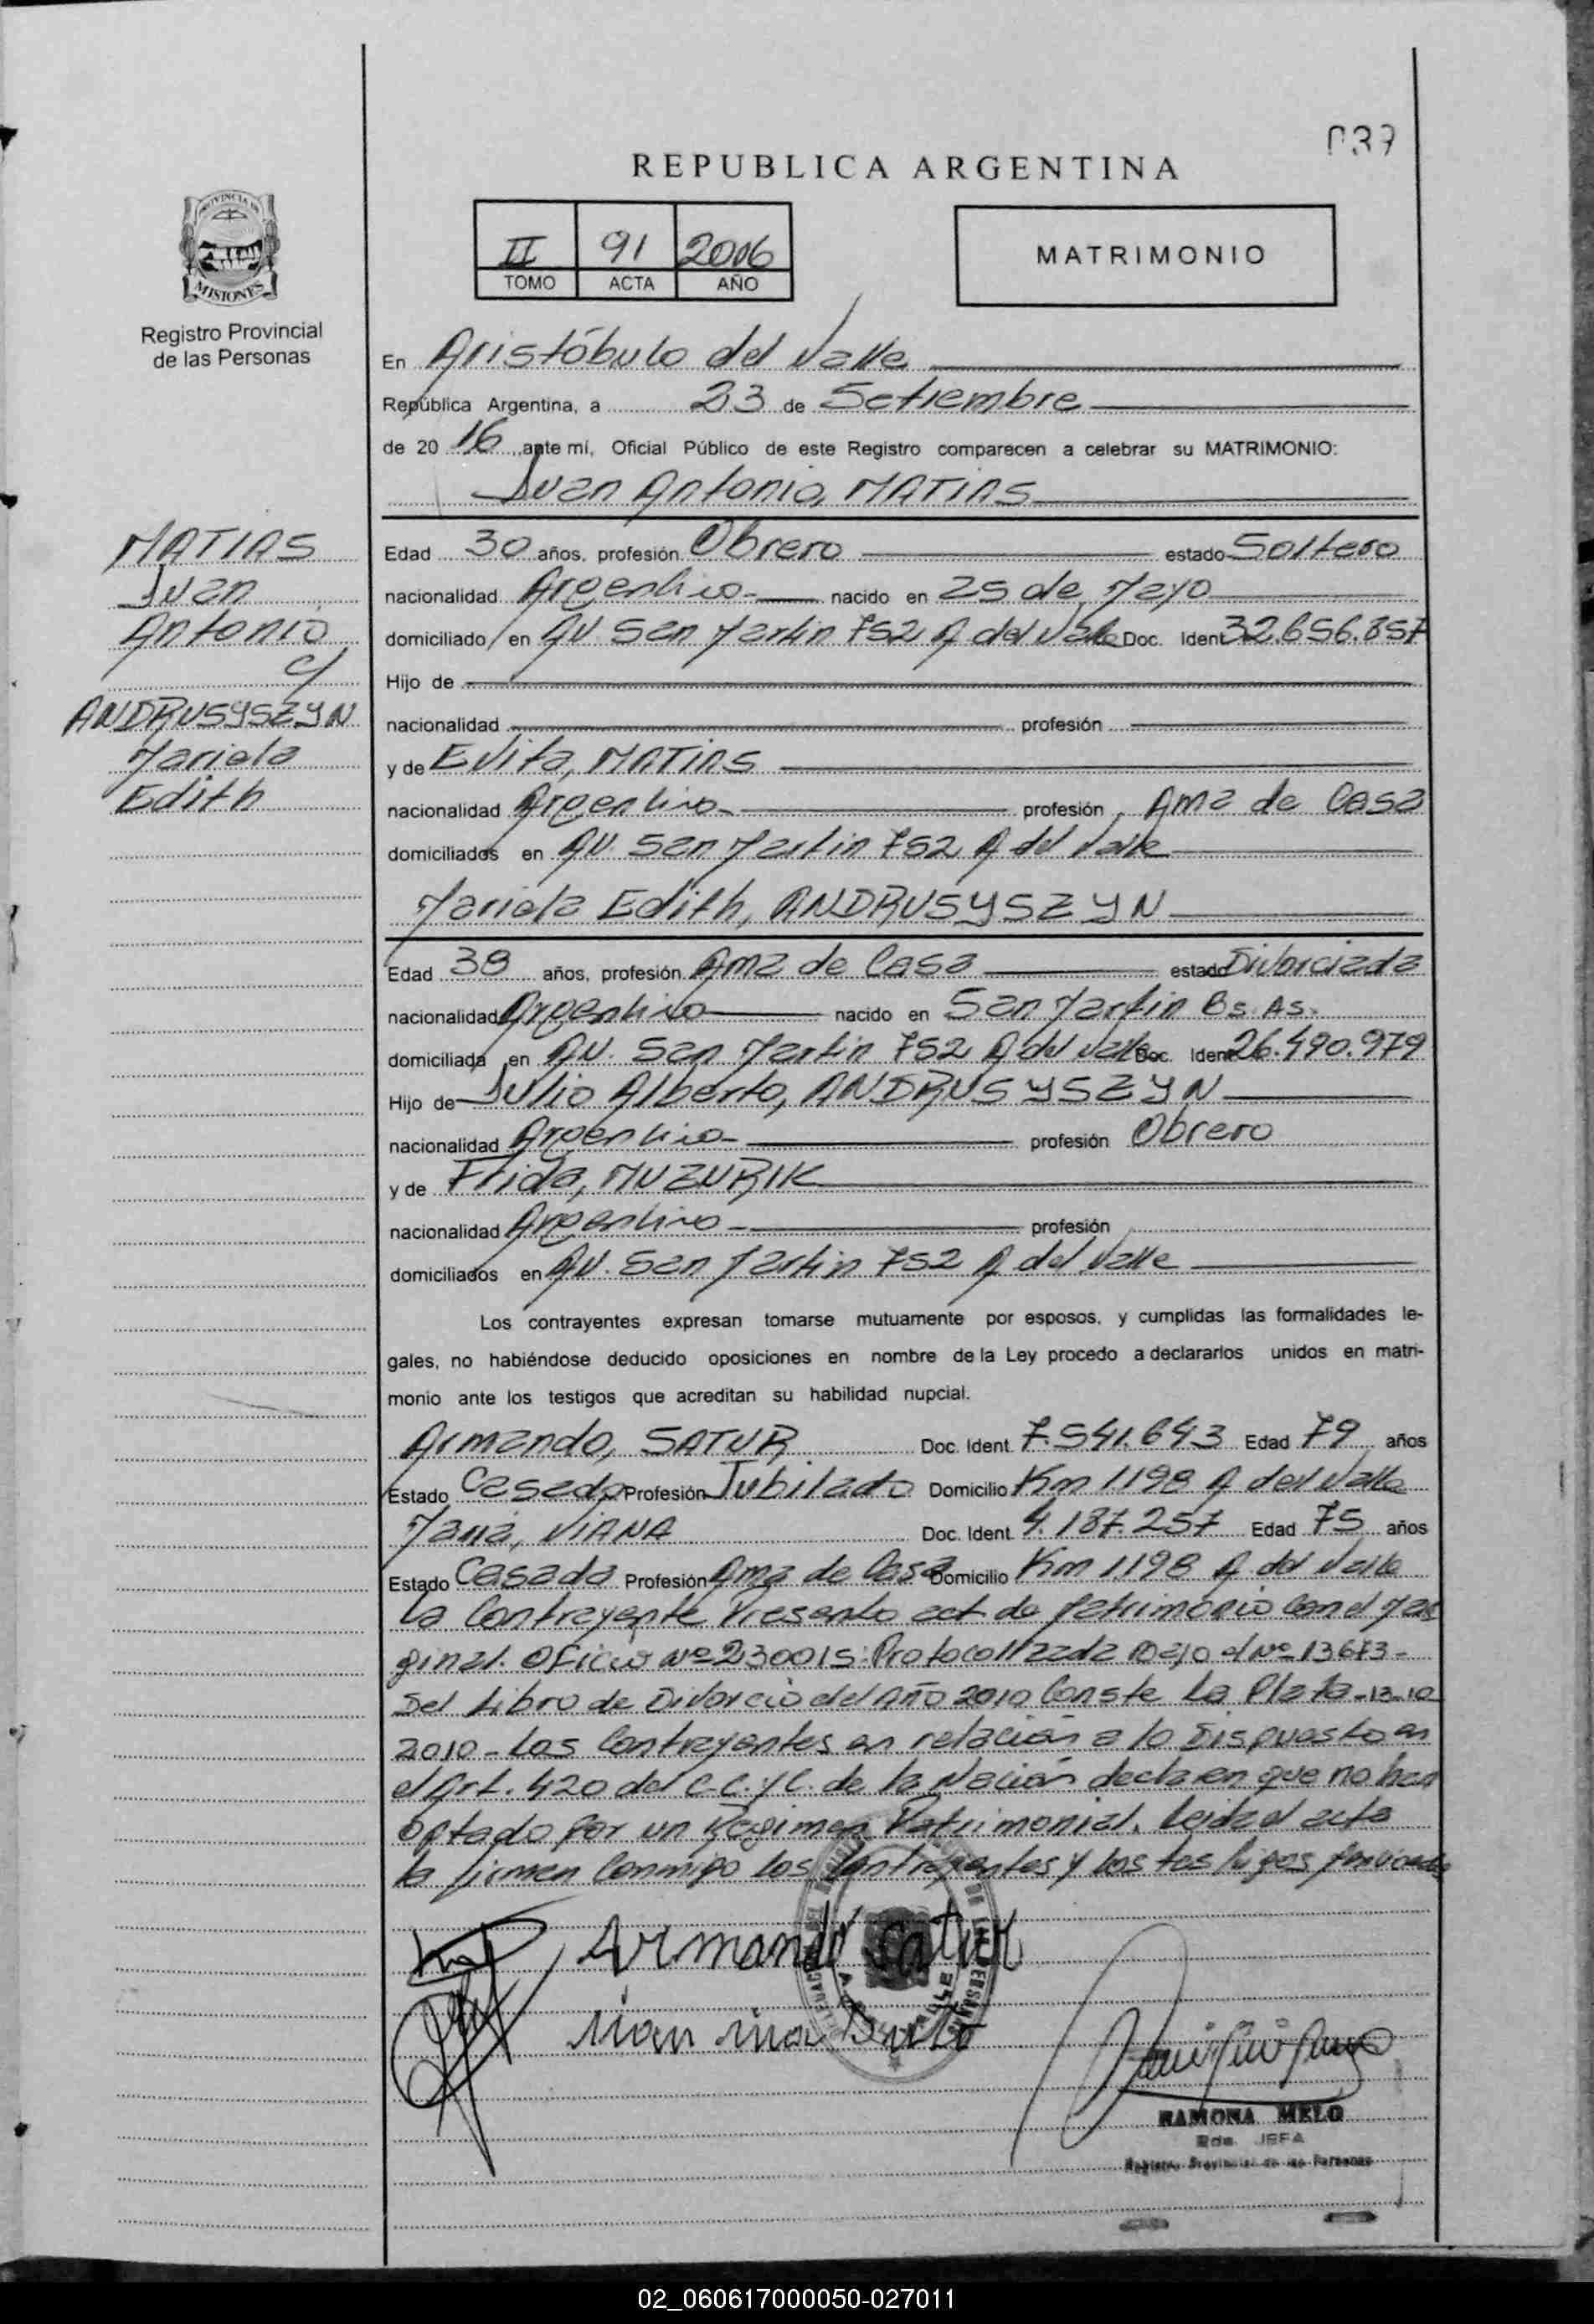 037
REPUBLICA ARGENTINA
II 91 2016
TOMO ACTA AÑO
MATRIMONIO
PROVINCIA DE
MISIONES
Registro Provincial
de las Personas
En Aristóbulo del Valle
República Argentina, a 23 de Setiembre
de 20 16 ante mí, Oficial Público de este Registro comparecen a celebrar su MATRIMONIO:
Juan Antonio, MATIAS
MATIAS
Juan
Antonio
c/
ANDRUSYSZYN
Mariela
Edith
Edad 30 años, profesión Obrero estado Soltero
nacionalidad Argentino nacido en 25 de Mayo
domiciliado en AV. San Martin 752 A del Valle Doc. Ident 32.656.857
Hijo de
nacionalidad profesión
y de Evita, MATIAS
nacionalidad Argentino profesión Ama de Casa
domiciliados en AV. San Martin 752 A del Valle
Mariela Edith, ANDRUSYSZYN
Edad 38 años, profesión Ama de Casa estado Divorciada
nacionalidad Argentino nacido en San Martin Bs. As.
domiciliada en AV. San Martin 752 A del Valle Doc. Ident 26.490.979
Hijo de Julio Alberto, ANDRUSYSZYN
nacionalidad Argentino profesión Obrero
y de Frida, MUZURIK
nacionalidad Argentino profesión
domiciliados en AV. San Martin 752 A del Valle
Los contrayentes expresan tomarse mutuamente por esposos, y cumplidas las formalidades le-
gales, no habiéndose deducido oposiciones en nombre de la Ley procedo a declararlos unidos en matri-
monio ante los testigos que acreditan su habilidad nupcial.
Armando, SATUR Doc. Ident. 7.541.643 Edad 79 años
Estado Casado Profesión Jubilado Domicilio Km 1198 A del Valle
Maria, VIANA Doc. Ident. 4.187.257 Edad 75 años
Estado Casada Profesión Ama de Casa Domicilio Km 1198 A del Valle
La Contrayente Presento act de Matrimonio Con el Mar
ginal. Oficio Nº 230015: Protocolizada Bajo el Nº 13673-
Del Libro de Divorcio del Año 2010 Conste La Plata-13-10
2010- Los Contrayentes en relación a lo Dispuesto en
el Art. 420 del C.C. y C. de la Nación declaran que no han
optado por un Régimen Patrimonial. Leida el acta
la firman Conmigo los Contrayentes y los testigos
Armando Satur
RAMONA MELO
JEFA
Registro Provincial de las Personas
02_060617000050-027011